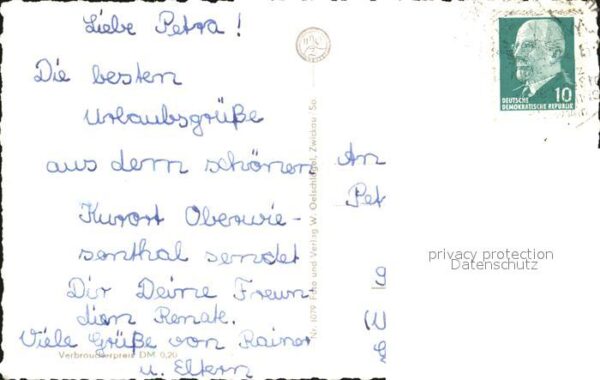 Liebe Petra!
Die besten
Urlaubsgrüße
aus dem schönen
Kurort Oberwie-
senthal sendet
Dir Deine Freun
din Renate.
Viele Grüße von Rainer
u. Eltern
Verbraucherpreis DM 0,20
Nr. 1079 Foto und Verlag W. Oelschlägel, Zwickau So.
10
DEUTSCHE
DEMOKRATISCHE REPUBLIK
An
Pet
privacy protection
Datenschutz